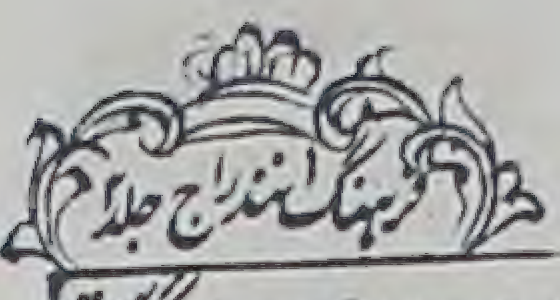 فرهنگ انندراج جلد